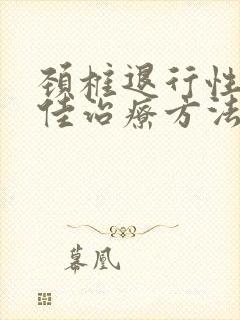 颈椎退行性
佳治疗方法
幕凰